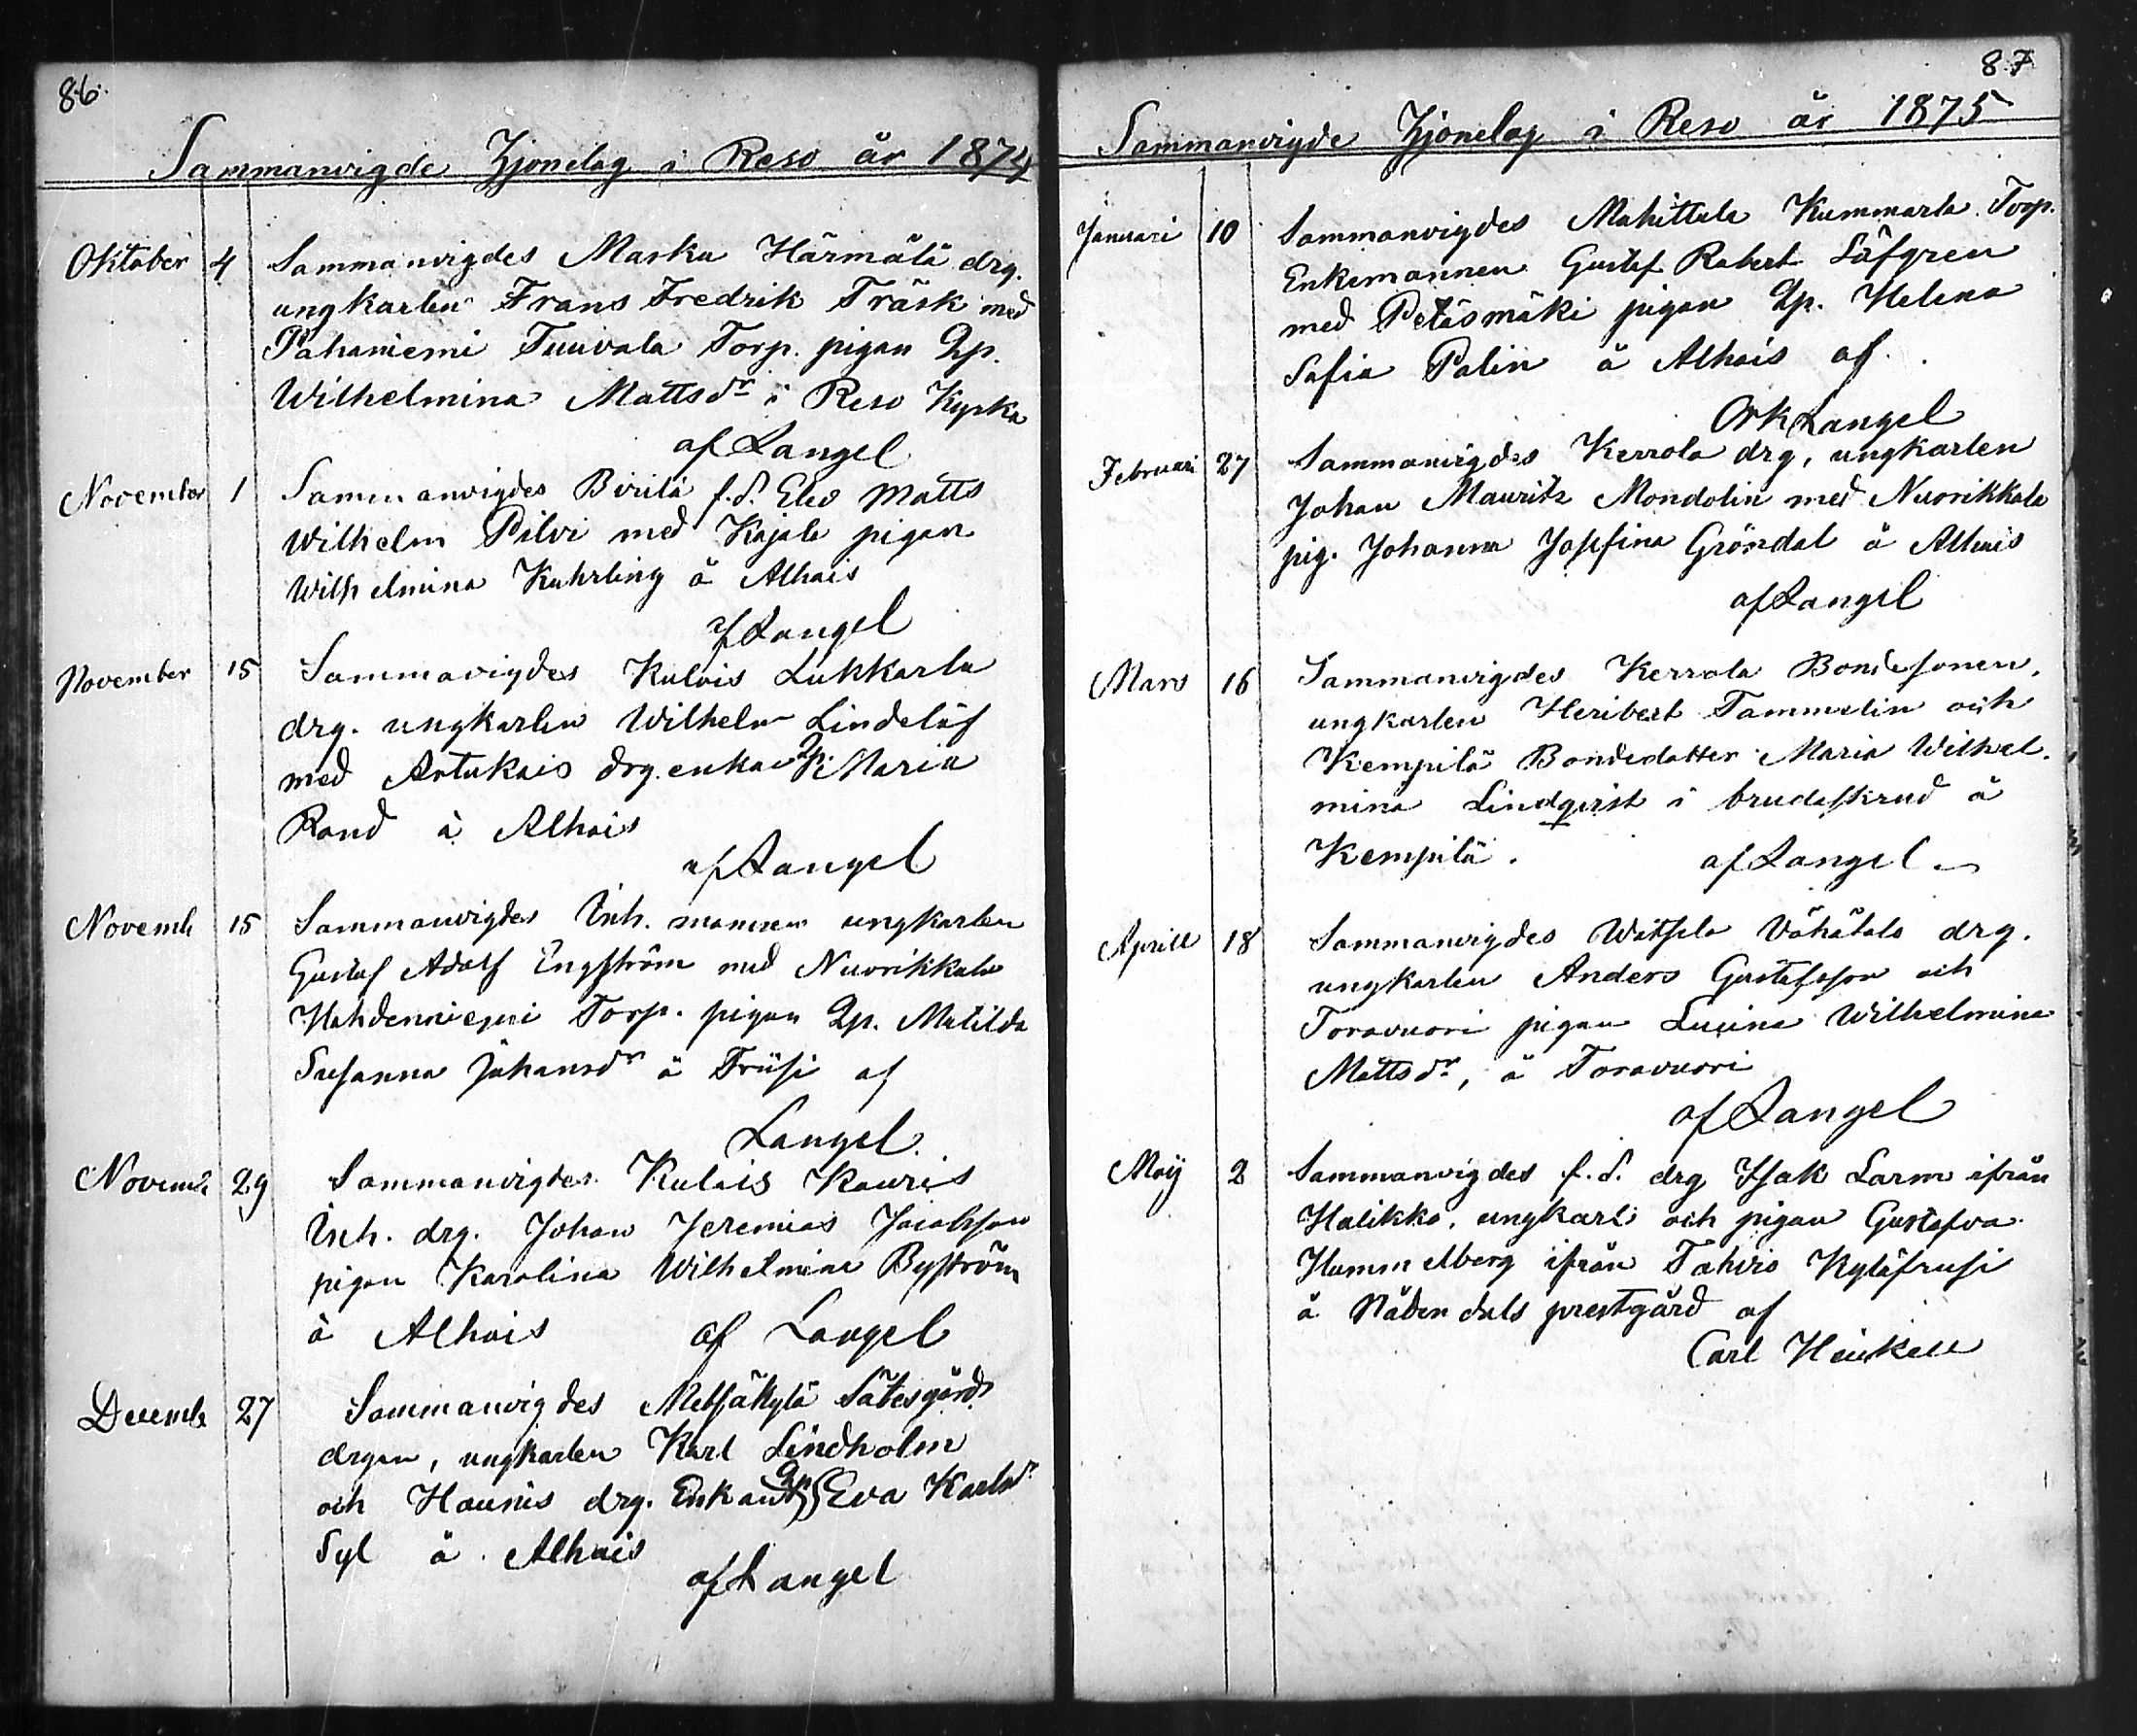 86.
Sammanvigde Hjonelag i Reso år 1874
Oktober 4 Sammanvigdes Masku Härmälä drg.
ungkarlen Frans Fredrik Träsk med
Pahaniemi Tuuvala Torp. pigan Qp.
Wilhelmina Mattsdr i Reso Kyrka
af Langel
November 1 Sammanvigdes Birilä f.d. Elev Matts
Wilhelm Pilvi med Kajala pigan
Wilhelmina Kuhrling å Alhais
af Langel
November 15 Sammavigdes Kulois Lukkarla
drg. ungkarlen Wilhelm Lindelöf
med Artukais drg. enkan Qp. Maria
Rond å Alhais
af Langel
Novemb 15 Sammanvigdes Inh. mannen ungkarlen
Gustaf Adolf Engström med Nuorikkala
Torp. pigan Qp. Matilda
Susanna Johansdr å Friisi af
Langel.
Novemb 29 Sammanvigdes Kulais Kouris
Inh. drg. Johan Jeremias Jacobsson
pigan Karolina Wilhelmina Byström
å Alhais af Langel
Decemb 27 Sammanvigdes Metsäkylä Sätesgård
drgen, ungkarlen Karl Lindholm
och Haunis drg. Enkan Qp Eva Karlsdr
Syl å Alhais
af Langel
87
Sammanvigde Hjonelag i Reso år 1875
Januari 10 Sammanvigdes Mahittula Kummarla Torp.
Enkemannen Gustaf Robert Löfgren
med Petäsmäki pigan Qp. Helena
Sofia Palin å Alhais af
Langel
Februari 27 Sammanvigdes Kerrola drg, ungkarlen
Johan Mauritz Mondolin med Nuorikkala
pig. Johanna Josefina Gröndal å Alhais
af Langel
Mars 16 Sammanvigdes Kerrola Bondesonen,
ungkarlen Heribert Tammelin och
Kempilä Bondedotter Maria Wilhel.
mina Lindqvist i brudeskrud å
Kempilä. af Langel
Aprill 18 Sammanvigdes Vähätalo drg.
ungkarlen Anders Gustafsson och
Toravuori pigan Lucina Wilhelmina
Mattsdr, å Toravuori
af Langel
Maij 2 Sammanvigdes f.d. drg Isak Larm ifrån
Halikko, ungkarl och pigan Gustafva
Hammelberg ifrån Tahvio
å Nådendals prestgård af
Carl Heinkell